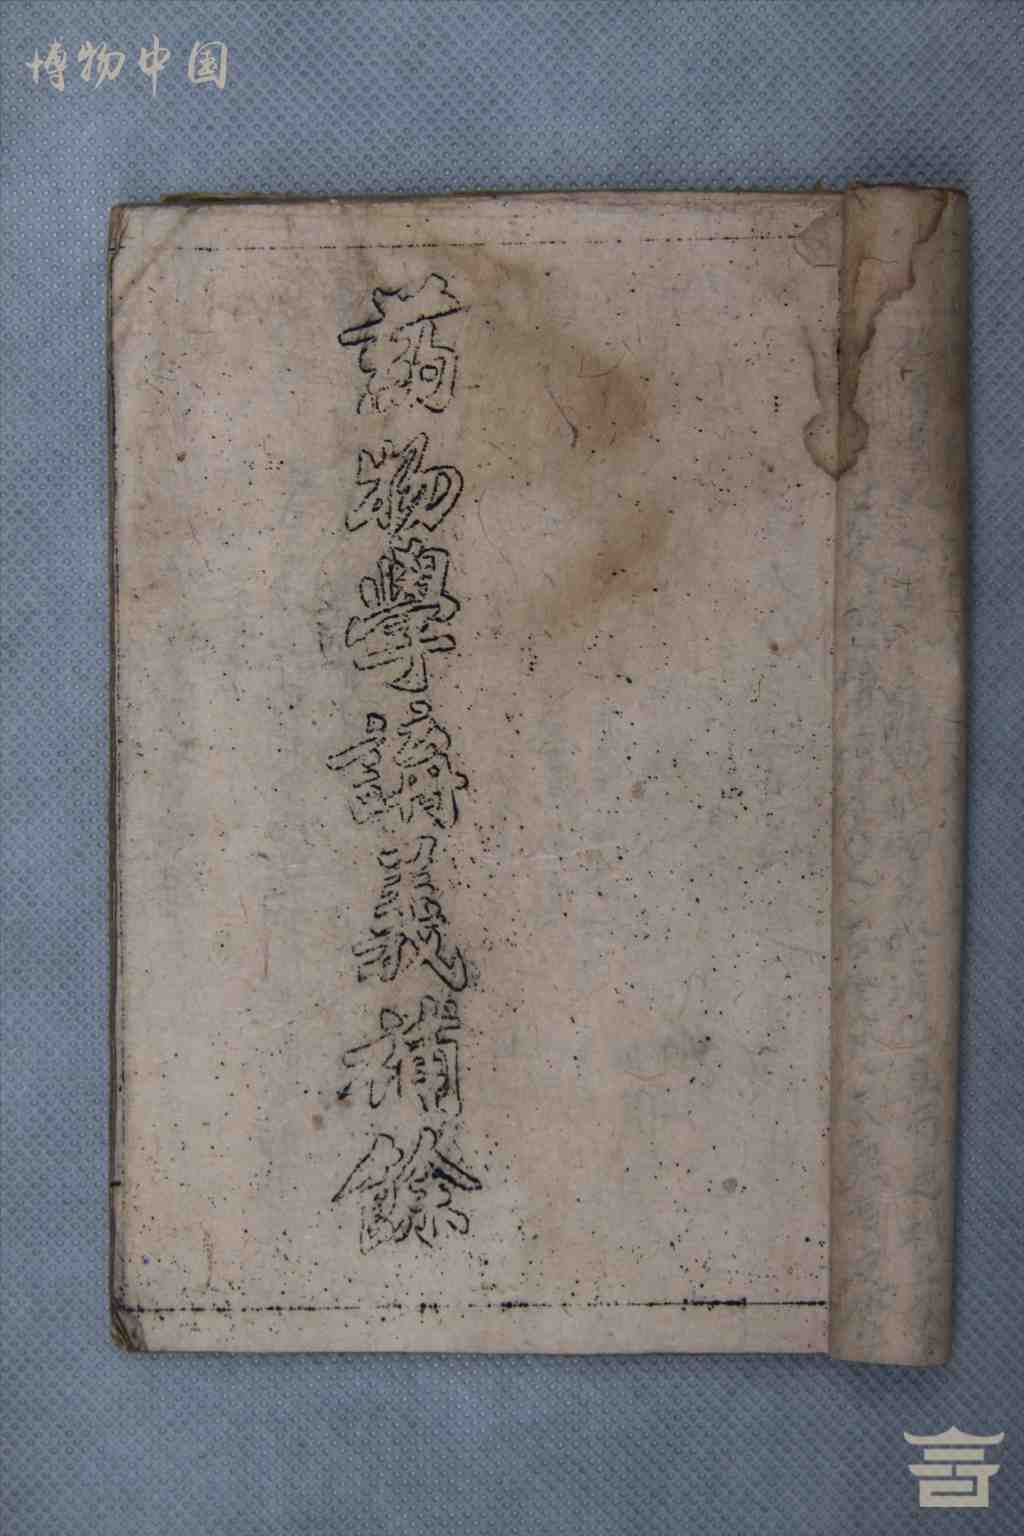 博物中国
葯物學講義補餘